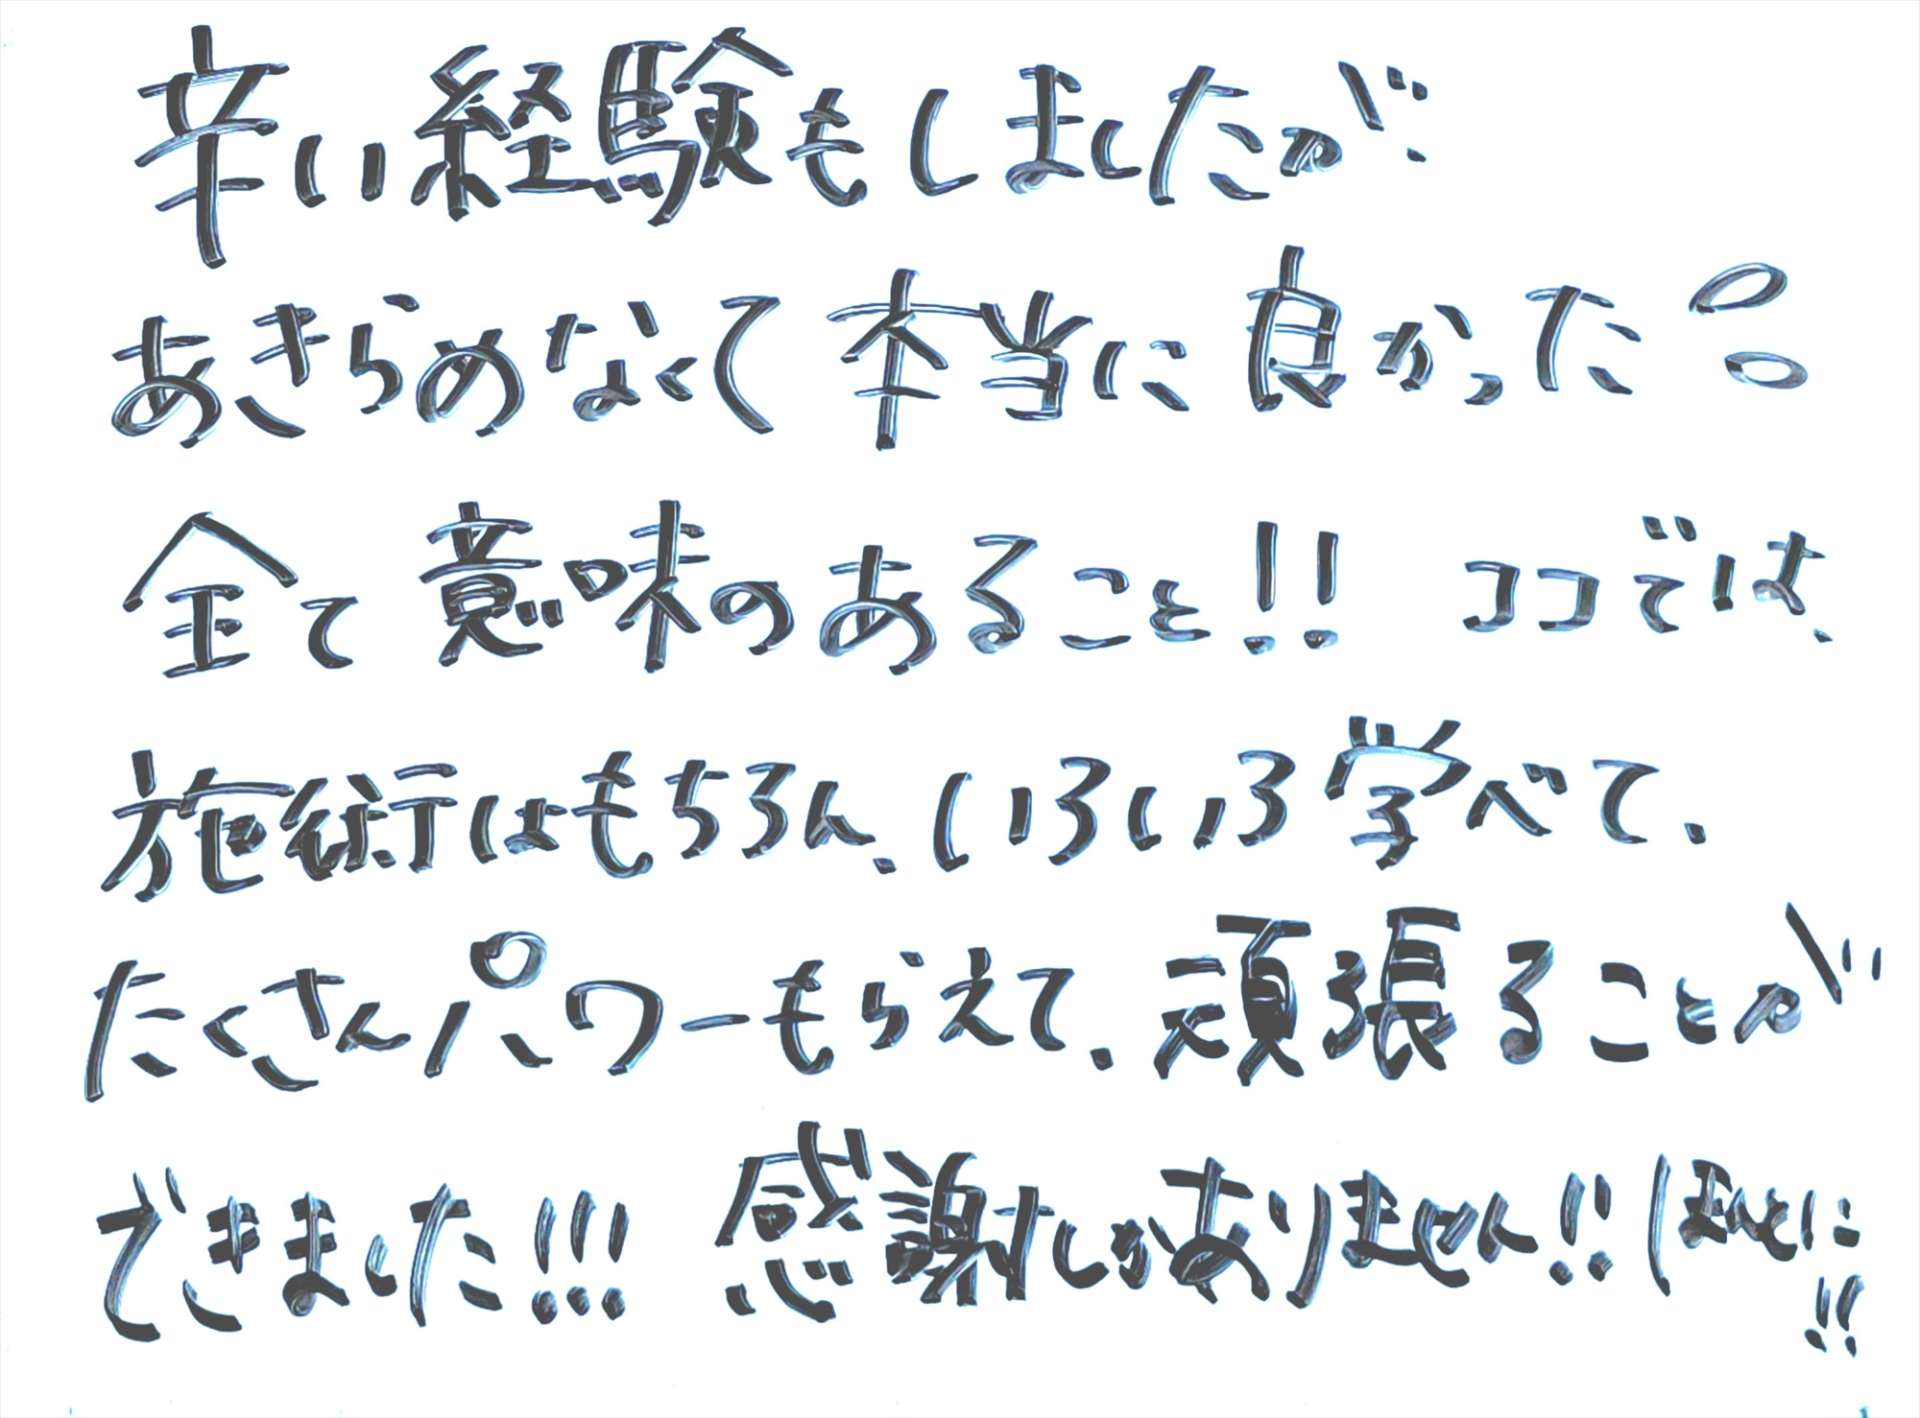 辛い経験もしましたが、
あきらめなくて本当に良かった!!
全て意味のあること!! ココでは、
施術はもちろん、いろいろ学べて、
たくさんパワーもらえて、頑張ることが
できました!!! 感謝しかありません!! ほんとに!!